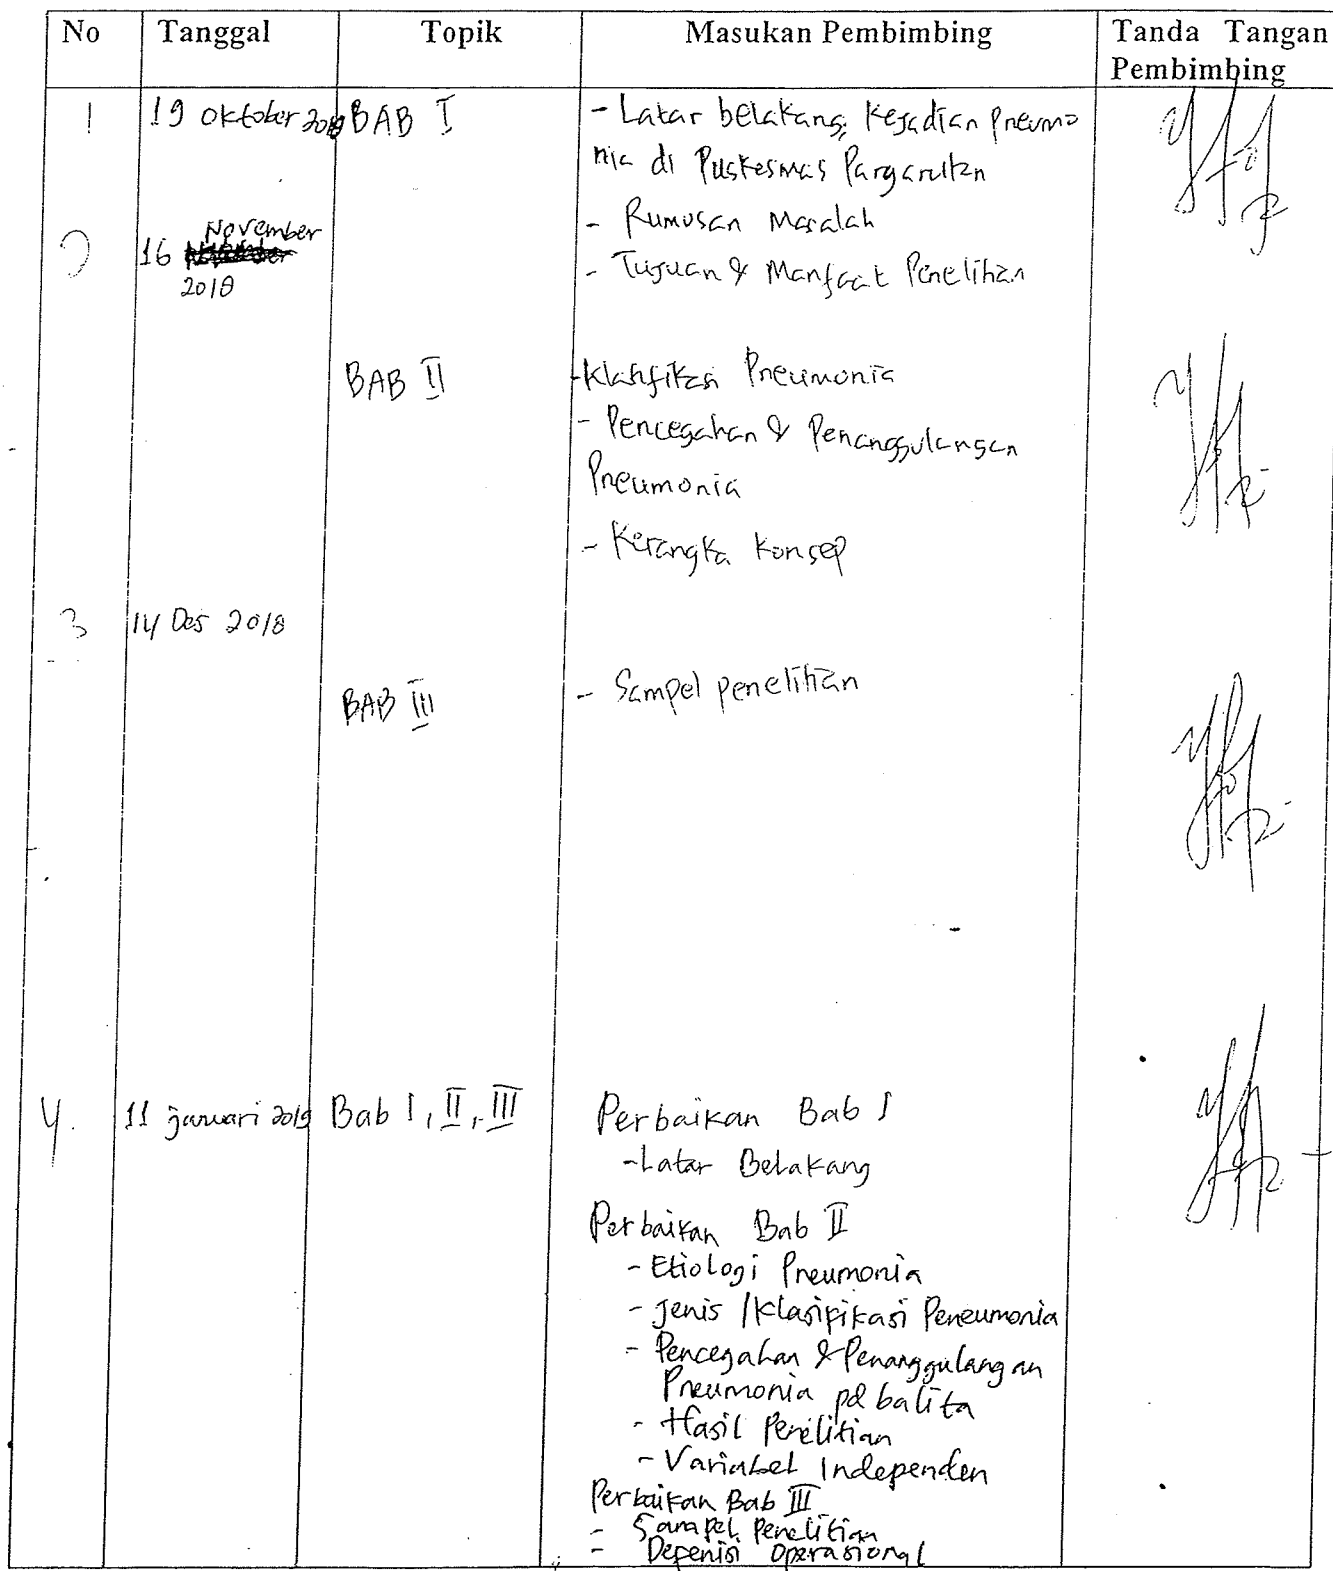 No Tanggal Topik Masukan Pembimbing Tanda Tangan
Pembimbing
1 19 Oktober 2018 BAB I - Latar belakang, Kejadian pneumo
nia di Puskesmas Pargarutan
- Rumusan Masalah
2 16 November
2018
- Tujuan & Manfaat Penelitian
BAB II - Klasifikasi Pneumonia
- Pencegahan & Penanggulangan
Pneumonia
- Kerangka Konsep
3 14 Des 2018
BAB III - Sampel penelitian
4. 11 januari 2019 Bab I, II, III Perbaikan Bab I
- Latar Belakang
Perbaikan Bab II
- Etiologi Pneumonia
- Jenis / Klasifikasi Peneumonia
- Pencegahan & Penanggulangan
Pneumonia pd balita
- Hasil Penelitian
- Variabel Independen
Perbaikan Bab III
- Sampel penelitian
- Defenisi Operasional